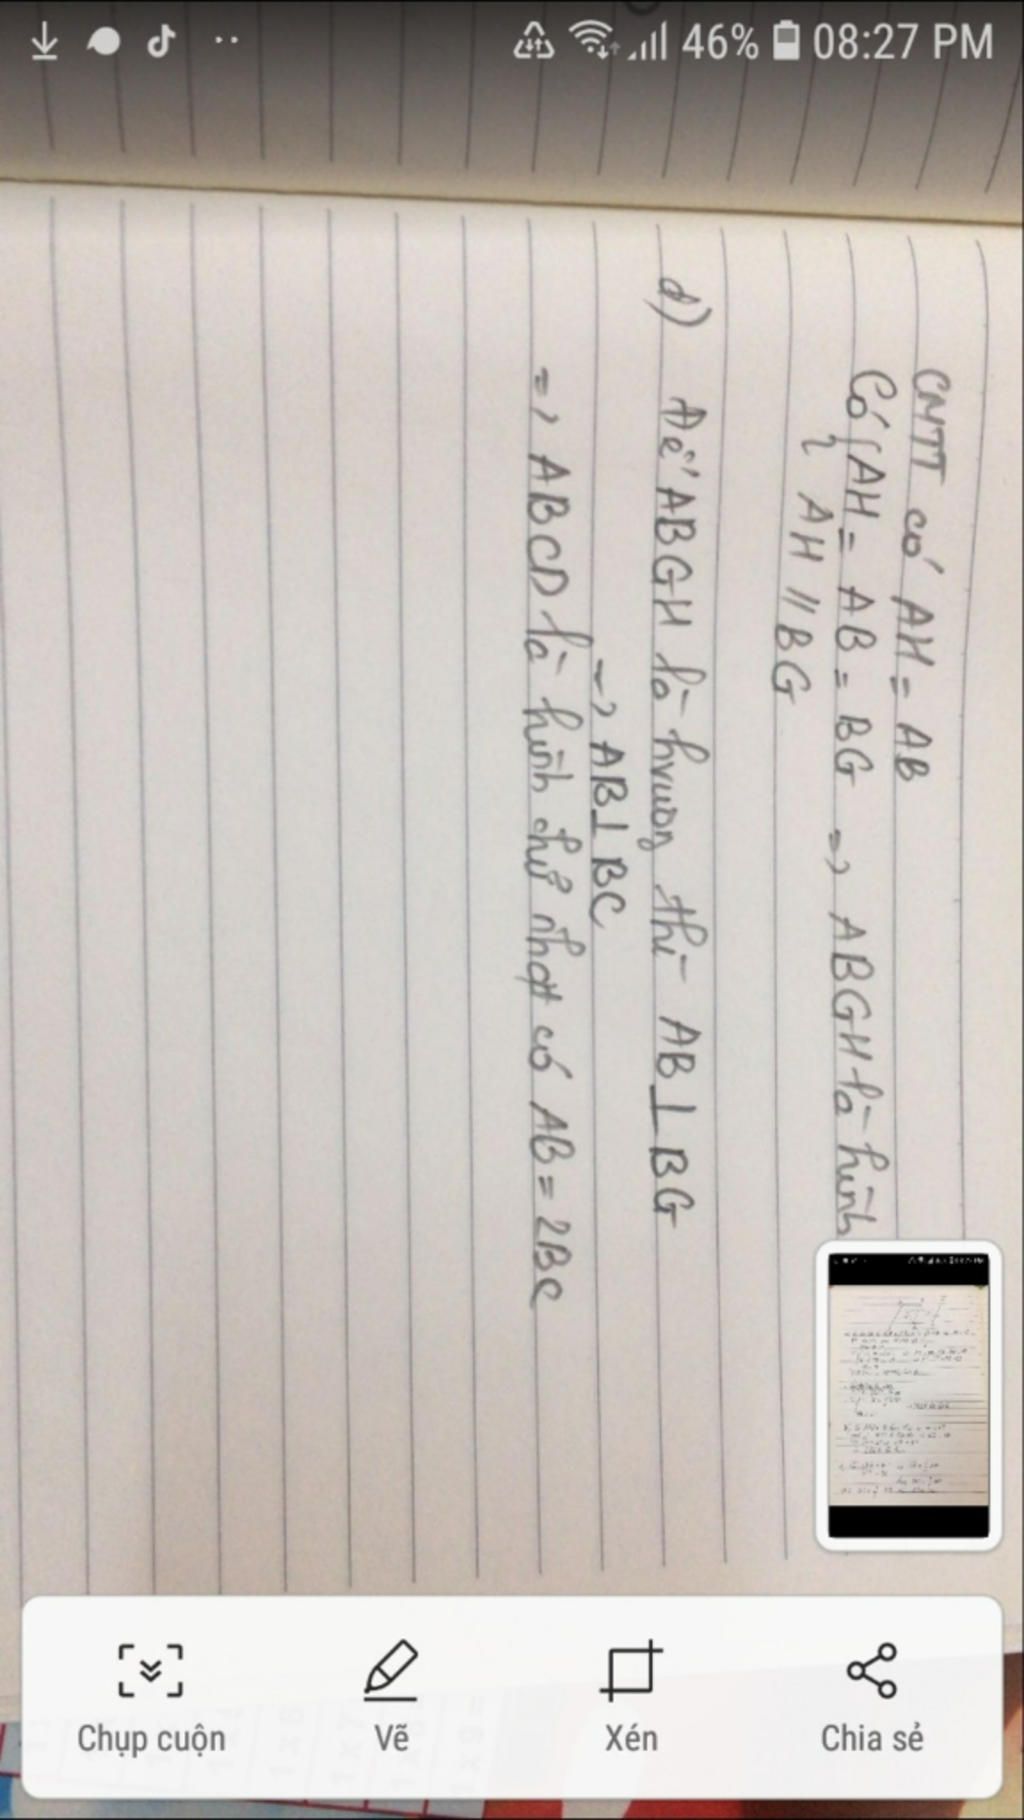 46% 08:27 PM
CMTT có AH = AB
Có { AH = AB = BG => ABGH là hình
AH // BG
d) Để ABGH là hvuông thì AB ⊥ BG
=> AB ⊥ BC
=> ABCD là hình chữ nhật có AB = 2BC
Chụp cuộn
Vẽ
Xén
Chia sẻ